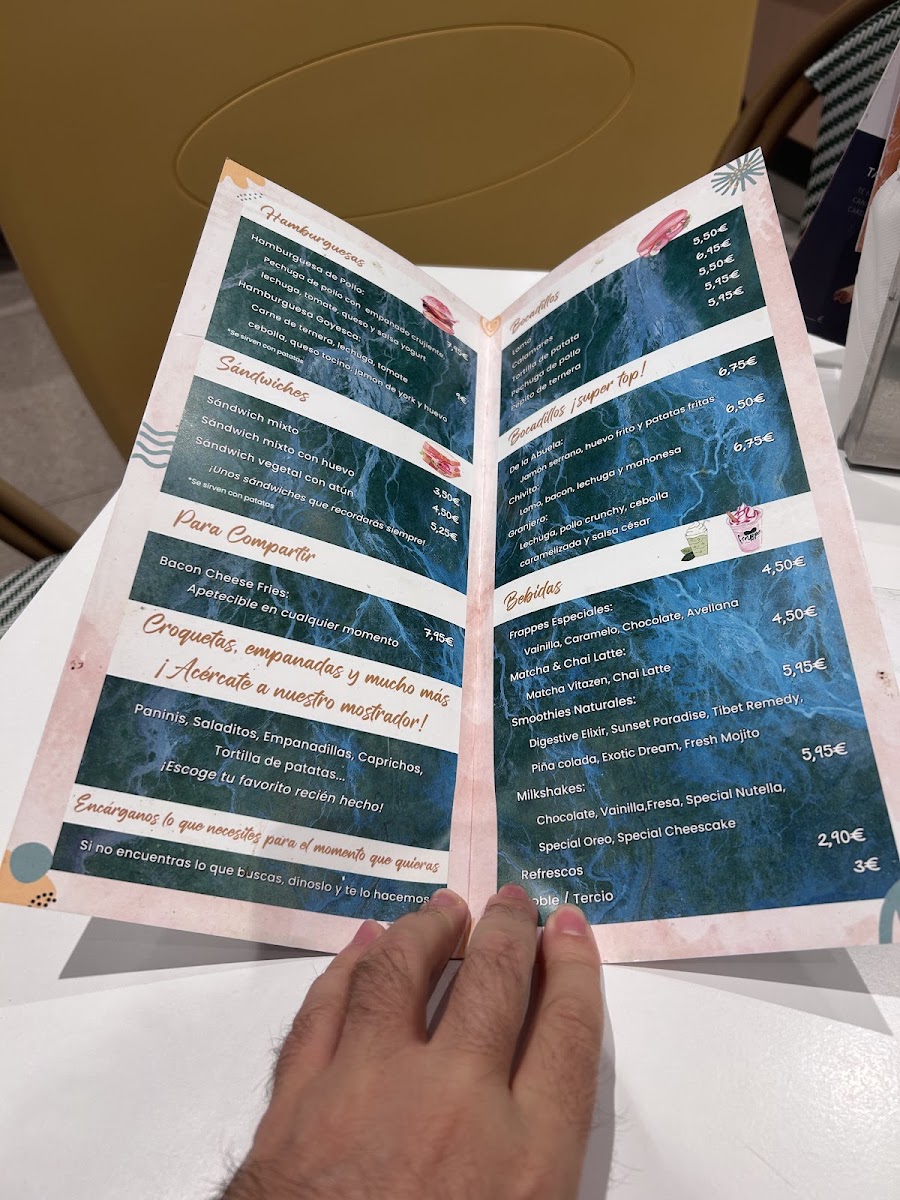 Hamburguesas
Hamburguesa de Pollo:
Pechuga de pollo con empanado crujiente,
lechuga, tomate, queso y salsa yogurt
7,95€
Hamburguesa Goyesca:
Carne de ternera, lechuga, tomate
cebolla, queso tocino, jamón de york y huevo
9€
*Se sirven con patatas
Sándwiches
Sándwich mixto
3,50€
Sándwich mixto con huevo
4,50€
Sándwich vegetal con atún
5,25€
¡Unos sándwiches que recordarás siempre!
*Se sirven con patatas
Para Compartir
Bacon Cheese Fries:
Apetecible en cualquier momento
7,95€
Croquetas, empanadas y mucho más
¡Acércate a nuestro mostrador!
Paninis, Saladitos, Empanadillas, Caprichos,
Tortilla de patatas...
¡Escoge tu favorito recién hecho!
Encárganos lo que necesites para el momento que quieras
Si no encuentras lo que buscas, dínoslo y te lo hacemos
Bocadillos
Lomo
5,50€
Calamares
6,95€
Tortilla de patata
5,50€
Pechuga de pollo
5,95€
Pepito de ternera
5,95€
Bocadillos ¡super top!
De la Abuela:
6,75€
Jamón serrano, huevo frito y patatas fritas
Chivito:
6,50€
Lomo, bacon, lechuga y mahonesa
Granjero:
6,75€
Lechuga, pollo crunchy, cebolla
caramelizada y salsa césar
Bebidas
Frappes Especiales:
4,50€
Vainilla, Caramelo, Chocolate, Avellana
Matcha & Chai Latte:
4,50€
Matcha Vitazen, Chai Latte
Smoothies Naturales:
5,95€
Digestive Elixir, Sunset Paradise, Tibet Remedy,
Piña colada, Exotic Dream, Fresh Mojito
Milkshakes:
5,95€
Chocolate, Vainilla,Fresa, Special Nutella,
Special Oreo, Special Cheescake
Refrescos
2,90€
oble / Tercio
3€